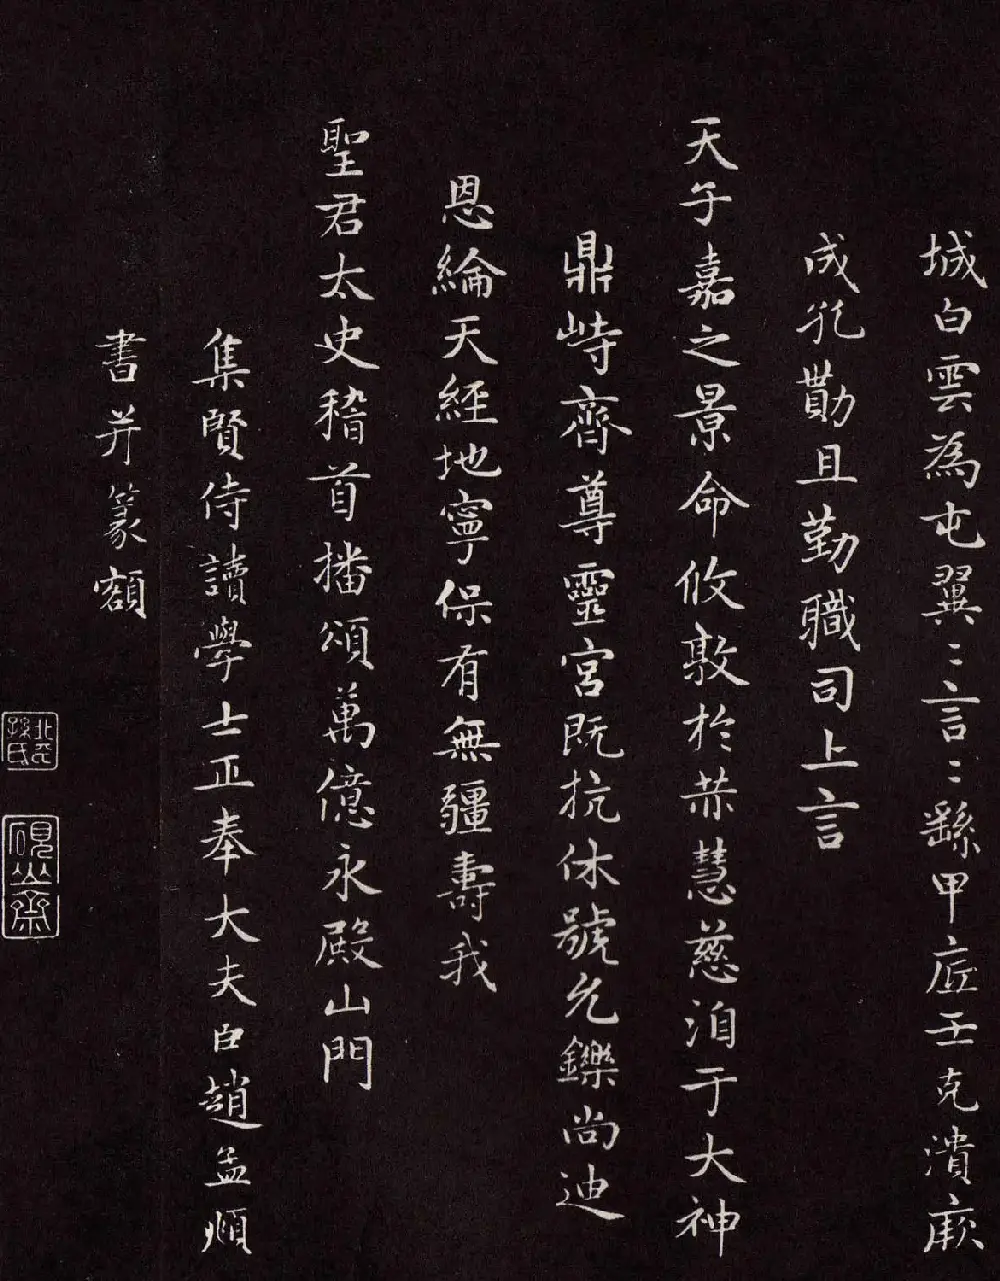 城白雲為屯翼〻言〻繇甲庢壬克潰厥
成氕勩且勤職司上言
天子嘉之景命攸敦於恭慧慈洎于大神
鼎峙齊尊靈宮既抗休號允鑠尚迪
恩綸天經地寧保有無疆壽我
聖君太史稽首播頌萬億永殿山門
集賢侍讀學士正奉大夫臣趙孟頫
書并篆額
北平孫氏
硯山齋